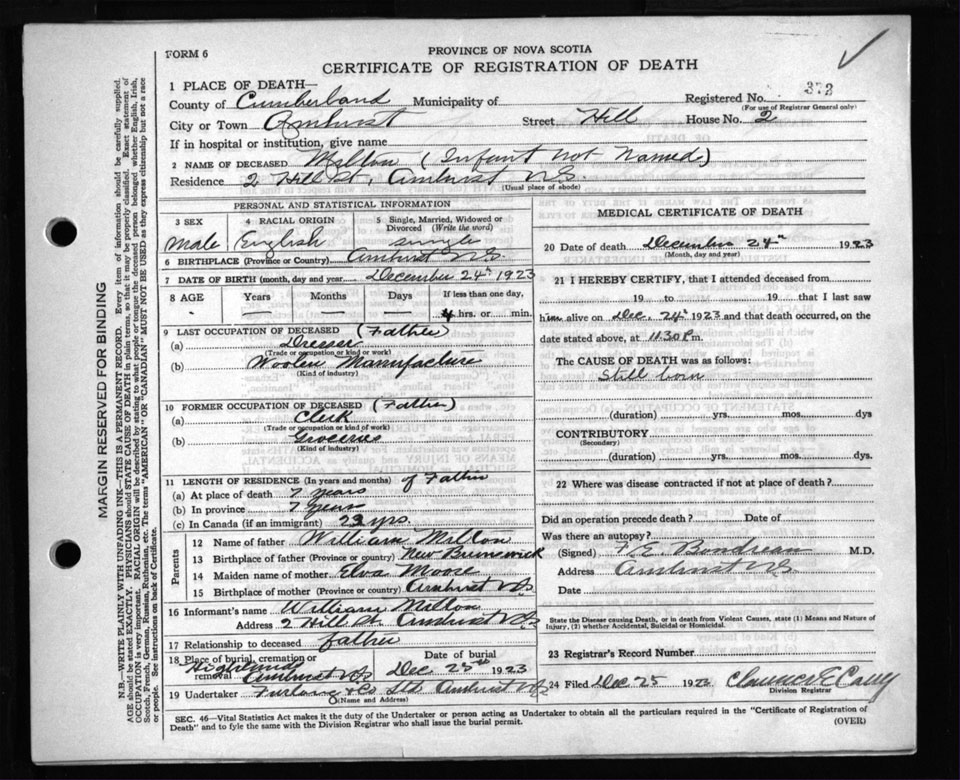 FORM 6
PROVINCE OF NOVA SCOTIA
CERTIFICATE OF REGISTRATION OF DEATH
1 PLACE OF DEATH—
County of Cumberland Municipality of
Registered No. 373
(For use of Registrar General only)
City or Town Amherst Street Hill House No. 2
If in hospital or institution, give name
2 NAME OF DECEASED Milton (Infant Not Named)
Residence 2 Hill St. Amherst N.S.
(Usual place of abode)
PERSONAL AND STATISTICAL INFORMATION
3 SEX Male
4 RACIAL ORIGIN English
5 Single, Married, Widowed or Divorced (Write the word) single
6 BIRTHPLACE (Province or Country) Amherst N.S.
7 DATE OF BIRTH (month, day and year) December 24th 1923
8 AGE Years Months Days If less than one day, 4 hrs. or min.
9 LAST OCCUPATION OF DECEASED (Father)
(a) Dresser
(Trade or occupation or kind or work)
(b) Woolen Manufacture
(Kind of industry)
10 FORMER OCCUPATION OF DECEASED (Father)
(a) Clerk
(Trade or occupation or kind of work)
(b) Groceries
(Kind of industry)
11 LENGTH OF RESIDENCE (In years and months) of Father
(a) At place of death 7 years
(b) In province 7 years
(c) In Canada (if an immigrant) 23 yrs.
Parents
12 Name of father William Milton
13 Birthplace of father (Province or country) New Brunswick
14 Maiden name of mother Elva Moose
15 Birthplace of mother (Province or country) Amherst N.S.
16 Informant's name William Milton
Address 2 Hill St. Amherst N.S.
17 Relationship to deceased father
18 Place of burial, cremation or removal Highland Amherst N.S. Date of burial Dec 25th 1923
19 Undertaker Furlong & Co Ltd Amherst N.S.
(Name and Address)
MEDICAL CERTIFICATE OF DEATH
20 Date of death December 24th 1923
(Month, day and year)
21 I HEREBY CERTIFY, that I attended deceased from
19 to 19 that I last saw
him alive on Dec. 24th 1923 and that death occurred, on
date stated above, at 11.30 P.m.
The CAUSE OF DEATH was as follows:
Still born
(duration) yrs. mos. dys
CONTRIBUTORY
(Secondary)
(duration) yrs. mos. dys.
22 Where was disease contracted if not at place of death?
Did an operation precede death? Date of
Was there an autopsy?
(Signed) E. M.D.
Address Amherst N.S.
Date
State the Disease causing Death, or in death from Violent Causes, state (1) Means and Nature of
Injury, (2) whether Accidental, Suicidal or Homicidal.
23 Registrar's Record Number
24 Filed Dec 25 1923 Clarence E
Division Registrar
SEC. 46—Vital Statistics Act makes it the duty of the Undertaker or person acting as Undertaker to obtain all the particulars required in the "Certificate of Registration of
Death" and to fyle the same with the Division Registrar who shall issue the burial permit.
(OVER)
MARGIN RESERVED FOR BINDING
N.B.—WRITE PLAINLY WITH UNFADING INK—THIS IS A PERMANENT RECORD. Every item of information should be carefully supplied.
AGE should be stated EXACTLY. PHYSICIANS should STATE CAUSE OF DEATH in plain terms, so that it may be properly classified. Exact statement of
OCCUPATION is very important. RACIAL ORIGIN will be described by stating to what people or tongue the deceased person belonged whether English, Irish,
Scotch, French, German, Russian, Ruthenian, etc. The terms "AMERICAN" OR "CANADIAN" MUST NOT BE USED as they express citizenship but not a race
or people. See instructions on back of Certificate.